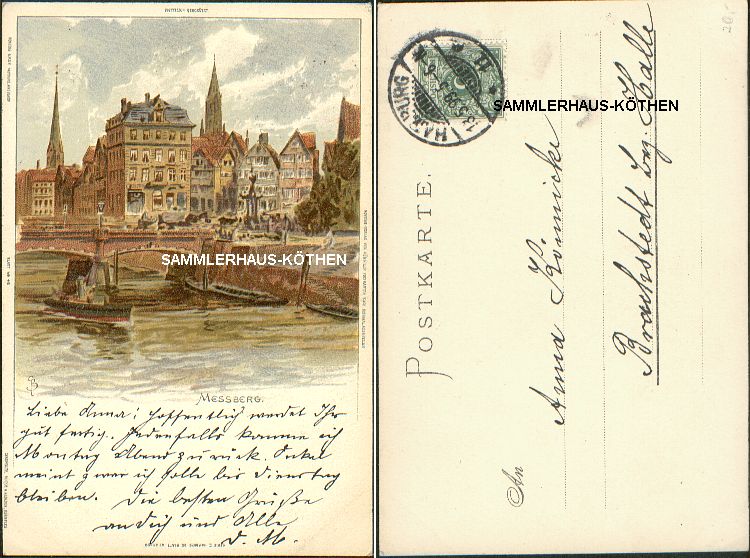 SAMMLERHAUS-KÖTHEN
MESSBERG.
Liebe Anna! Hoffentlich werdet Ihr
gut fertig. Jedenfalls komme ich
Montag Abend zurück. Onkel
meint zwar ich solle bis Dienstag
bleiben. Die besten Grüße
an Dich und Alle
D. M.
HARBURG
SAMMLERHAUS-KÖTHEN
POSTKARTE.
An
Anna Könnicke
Brachstedt Bez. Halle
20,-